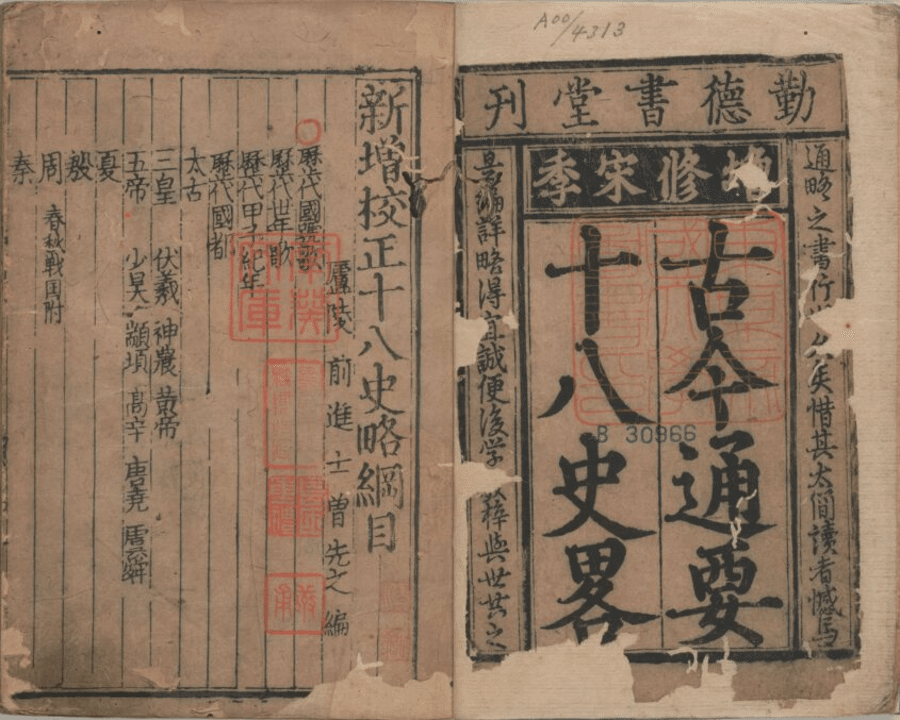 A00/4313
勤德書堂刊
增修宋季
古今通要
十八史畧
通略之書行 久矣惜其太簡讀者憾焉
是編詳略得宜誠便後学 梓與世共之
B 30966
新增校正十八史略綱目
廬陵前進士曽先之編
歷代國號歌
歷代世年歌
歷代甲子紀年
歷代國都
太古
三皇 伏羲 神農 黄帝
五帝 少昊 顓頊 高辛 唐堯 虞舜
夏
殷
周 春秋戦国附
秦